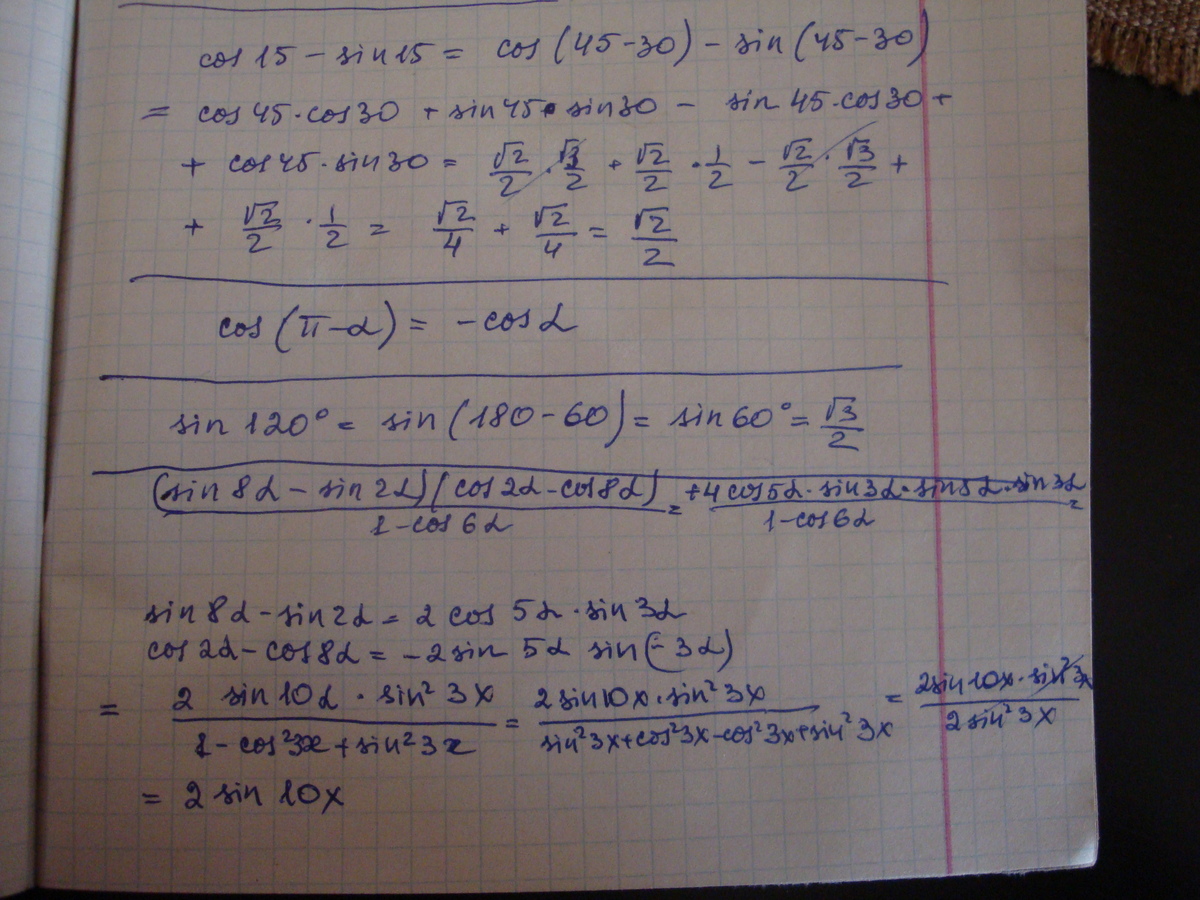 cos 15 − sin 15 = cos (45-30) − sin (45-30)
= cos 45 · cos 30 + sin 45 · sin 30 − sin 45 · cos 30 +
+ cos 45 · sin 30 = √2/2 · √3/2 + √2/2 · 1/2 − √2/2 · √3/2 +
+ √2/2 · 1/2 = √2/4 + √2/4 = √2/2
cos (π-α) = -cos α
sin 120° = sin (180-60) = sin 60° = √3/2
(sin 8α − sin 2α)(cos 2α - cos 8α)/(1-cos 6α) = +4 cos 5α · sin 3α · sin 5α · sin 3α/(1-cos 6α) =
sin 8α - sin 2α = 2 cos 5α · sin 3α
cos 2α - cos 8α = -2 sin 5α sin (-3α)
= 2 sin 10α · sin² 3x/(1 - cos² 3x + sin² 3x) = 2 sin 10x · sin² 3x/(sin² 3x + cos² 3x - cos² 3x + sin² 3x) = 2 sin 10x · sin² 3x/(2 sin² 3x)
= 2 sin 10x